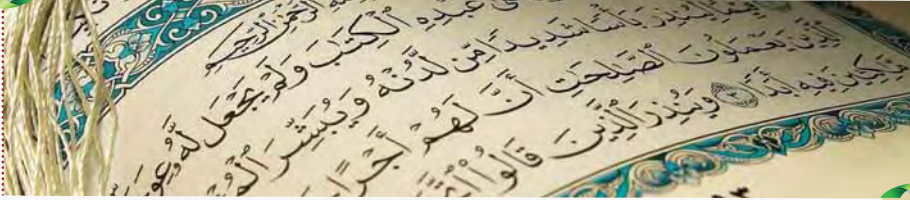 ٱلرَّحْمَٰنِ ٱلرَّحِيمِ
عَبْدِهِ ٱلْكِتَٰبَ وَلَمْ يَجْعَل لَّهُۥ عِوَجَا
لِّيُنذِرَ بَأْسًا شَدِيدًا مِّن لَّدُنْهُ وَيُبَشِّرَ
ٱلَّذِينَ يَعْمَلُونَ ٱلصَّٰلِحَٰتِ أَنَّ لَهُمْ أَجْرًا
مَّٰكِثِينَ فِيهِ أَبَدًا ٣ وَيُنذِرَ ٱلَّذِينَ قَالُوا۟